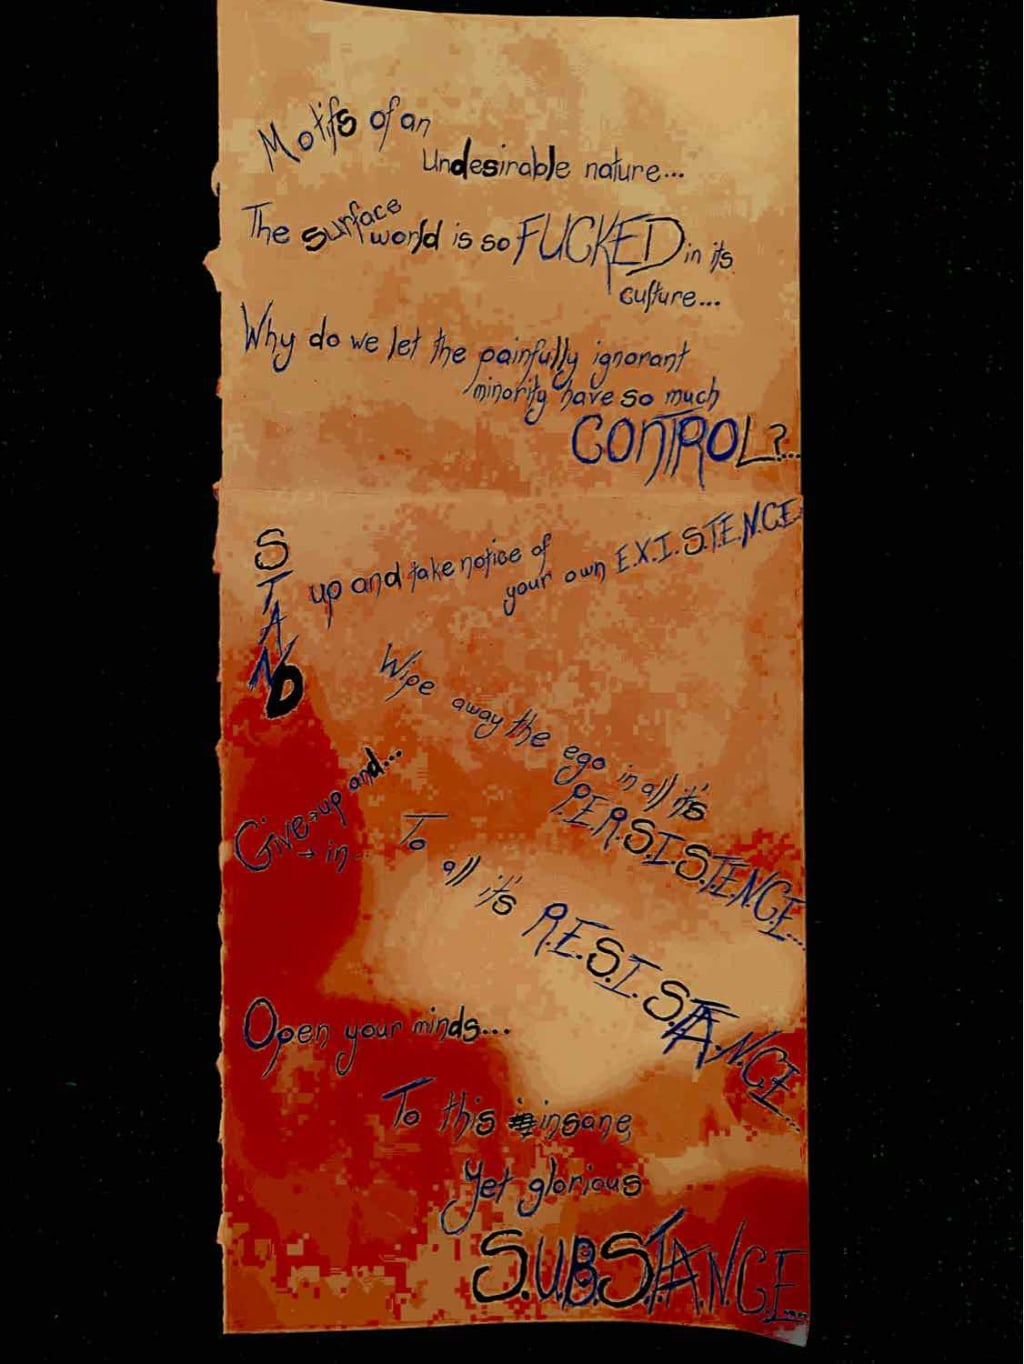 Motifs of an
undesirable nature...
The surface world is so FUCKED in its
culture...
Why do we let the painfully ignorant
minority have so much
CONTROL?...
STAND up and take notice of
your own E.X.I.S.T.E.N.C.E
Wipe away the ego in all it's
P.E.R.S.I.S.T.E.N.C.E...
Give → up and...
→ in...
To all it's R.E.S.I.S.T.A.N.C.E...
Open your minds...
To this insane,
yet glorious
S.U.B.S.T.A.N.C.E....